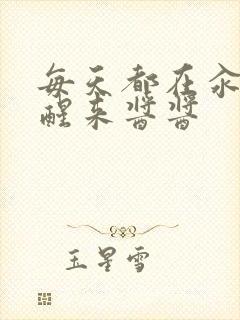 每天都在汆
醒来酱酱
玉星雪